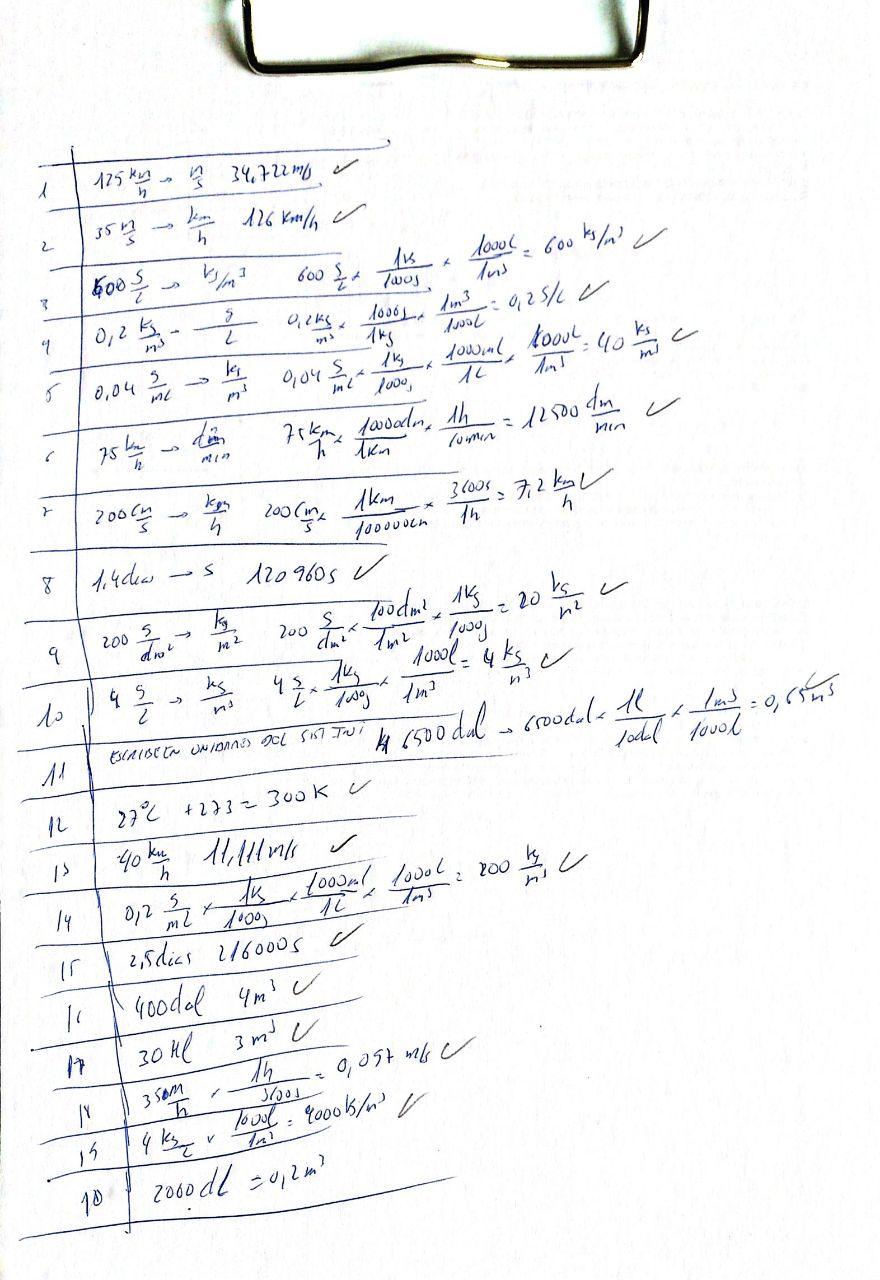 1 125 km/h → m/s 34,722 m/s ✓
2 35 m/s → km/h 126 km/h ✓
3 600 g/L → kg/m³ 600 g/L × 1kg/1000g × 1000l/1m³ = 600 kg/m³ ✓
4 0,2 kg/m³ - g/L 0,2 kg/m³ × 1000g/1kg × 1m³/1000L = 0,2 g/L ✓
5 0,04 g/mL → kg/m³ 0,04 g/mL × 1kg/1000g × 1000ml/1L × 1000L/1m³ = 40 kg/m³ ✓
6 75 km/h → dm/min 75 km/h × 10000dm/1km × 1h/60min = 12500 dm/min ✓
7 200 cm/s → km/h 200 cm/s × 1km/100000cm × 3600s/1h = 7,2 km/h ✓
8 1,4 dias → s 120960s ✓
9 200 g/dm² → kg/m² 200 g/dm² × 100dm²/1m² × 1kg/1000g = 20 kg/m² ✓
10 4 g/L → kg/m³ 4 g/L × 1kg/1000g × 1000l/1m³ = 4 kg/m³ ✓
11 ESCRIBE EN UNIDADES DEL SIST INT 6500 dal → 6500 dal × 1l/10dal × 1m³/1000l = 0,65m³ ✓
12 27ºC +273 = 300K ✓
13 40 km/h 11,111m/s ✓
14 0,2 g/mL × 1kg/1000g × 1000ml/1L × 1000L/1m³ = 200 kg/m³ ✓
15 2,5dias 216000s ✓
16 400dal 4m³ ✓
17 30Hl 3m³ ✓
18 350m/h × 1h/3600s = 0,097 m/s ✓
19 4 kg/L × 1000l/1m³ = 4000kg/m³ ✓
2000dl = 0,2m³